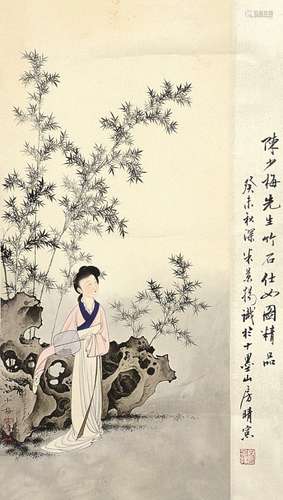 陳少梅先生竹石仕女圖精品
癸未秋深米景揚識於十墨山房晴窗
少梅